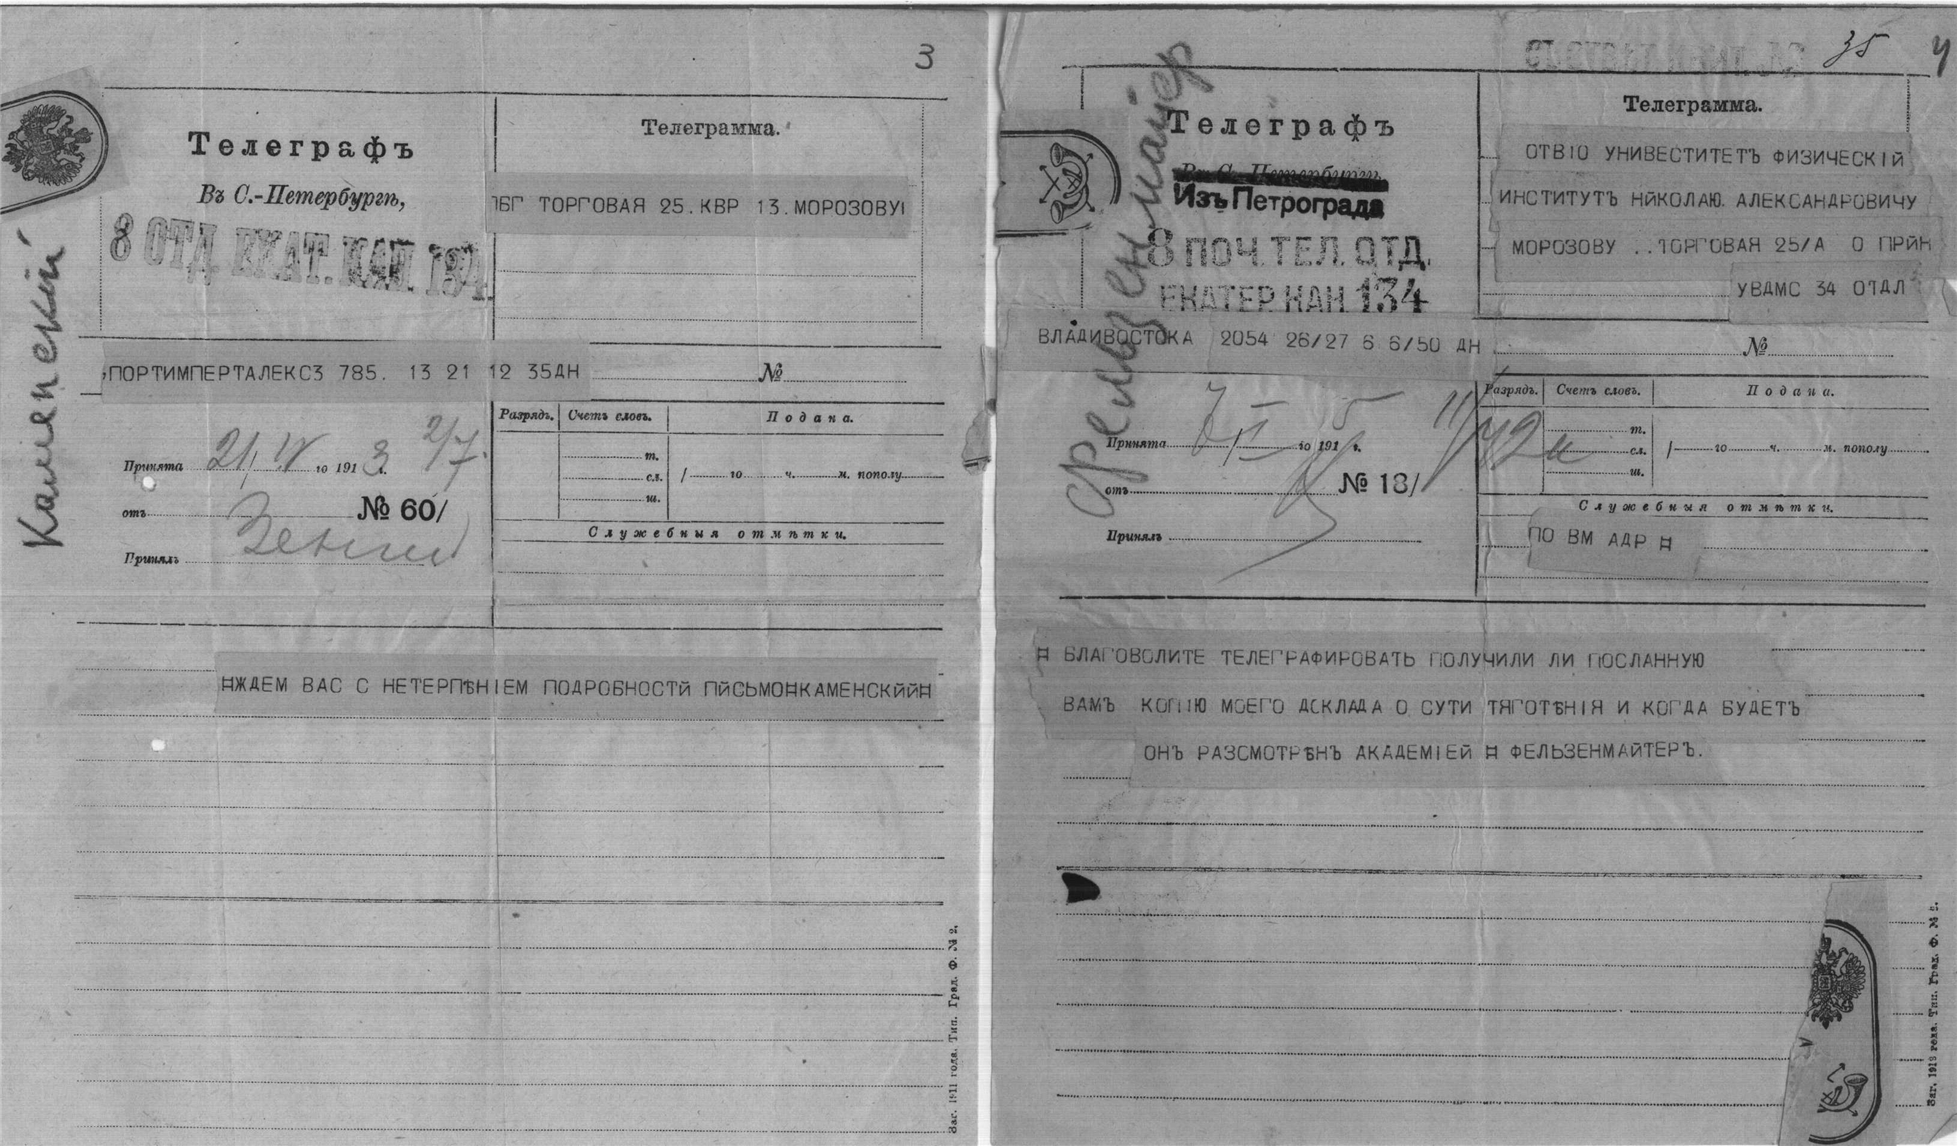 3
Телеграфъ
Въ С.-Петербургѣ,
8 ОТД ЕКАТ. КАН. 134
Каменский
Телеграмма.
ПБГ ТОРГОВАЯ 25. КВР 13. МОРОЗОВУ
ПОРТИМПЕРТАЛЕКСЗ 785. 13 21 12 35ДН
№
Разрядъ. Счетъ словъ. Подана.
т.
сл. го ч. м. пополу
ш.
Принята 21/IV го 1913 г. 2/7.
отъ № 60/
Принялъ
Служебныя отмѣтки.
ЖДЕМ ВАС С НЕТЕРПѢНІЕМ ПОДРОБНОСТЙ ПЙСЬМО КАМЕНСКЙЙ
Зас. 1911 года. Тип. Град. Ф. № 2.
35 4
Телеграфъ
Въ С.-Петербургѣ,
Изъ Петрограда
8 ПОЧ. ТЕЛ. ОТД.
ЕКАТЕР КАН. 134
Фельзенмайер
Телеграмма.
ОТВІО УНИВЕСТИТЕТЪ ФИЗИЧЕСКІЙ
ИНСТИТУТЪ НЙКОЛАЮ. АЛЕКСАНДРОВИЧУ
МОРОЗОВУ .. ТОРГОВАЯ 25/А О ПРЙН
УВДМС 34 ОТДЛ
ВЛАДИВОСТОКА 2054 26/27 6 6/50 ДН
№
Разрядъ. Счетъ словъ. Подана.
т.
сл. го ч. м. пополу
ш.
Принята го 191 г.
отъ № 18/
Принялъ
Служебныя отмѣтки.
ПО ВМ АДР
БЛАГОВОЛИТЕ ТЕЛЕГРАФИРОВАТЬ ПОЛУЧИЛИ ЛИ ПОСЛАННУЮ
ВАМЪ КОПІЮ МОЕГО ДОКЛАДА О СУТИ ТЯГОТѢНІЯ И КОГДА БУДЕТЪ
ОНЪ РАЗСМОТРѢНЪ АКАДЕМІЕЙ ФЕЛЬЗЕНМАЙТЕРЪ.
Тип. Град. Ф. № 2.